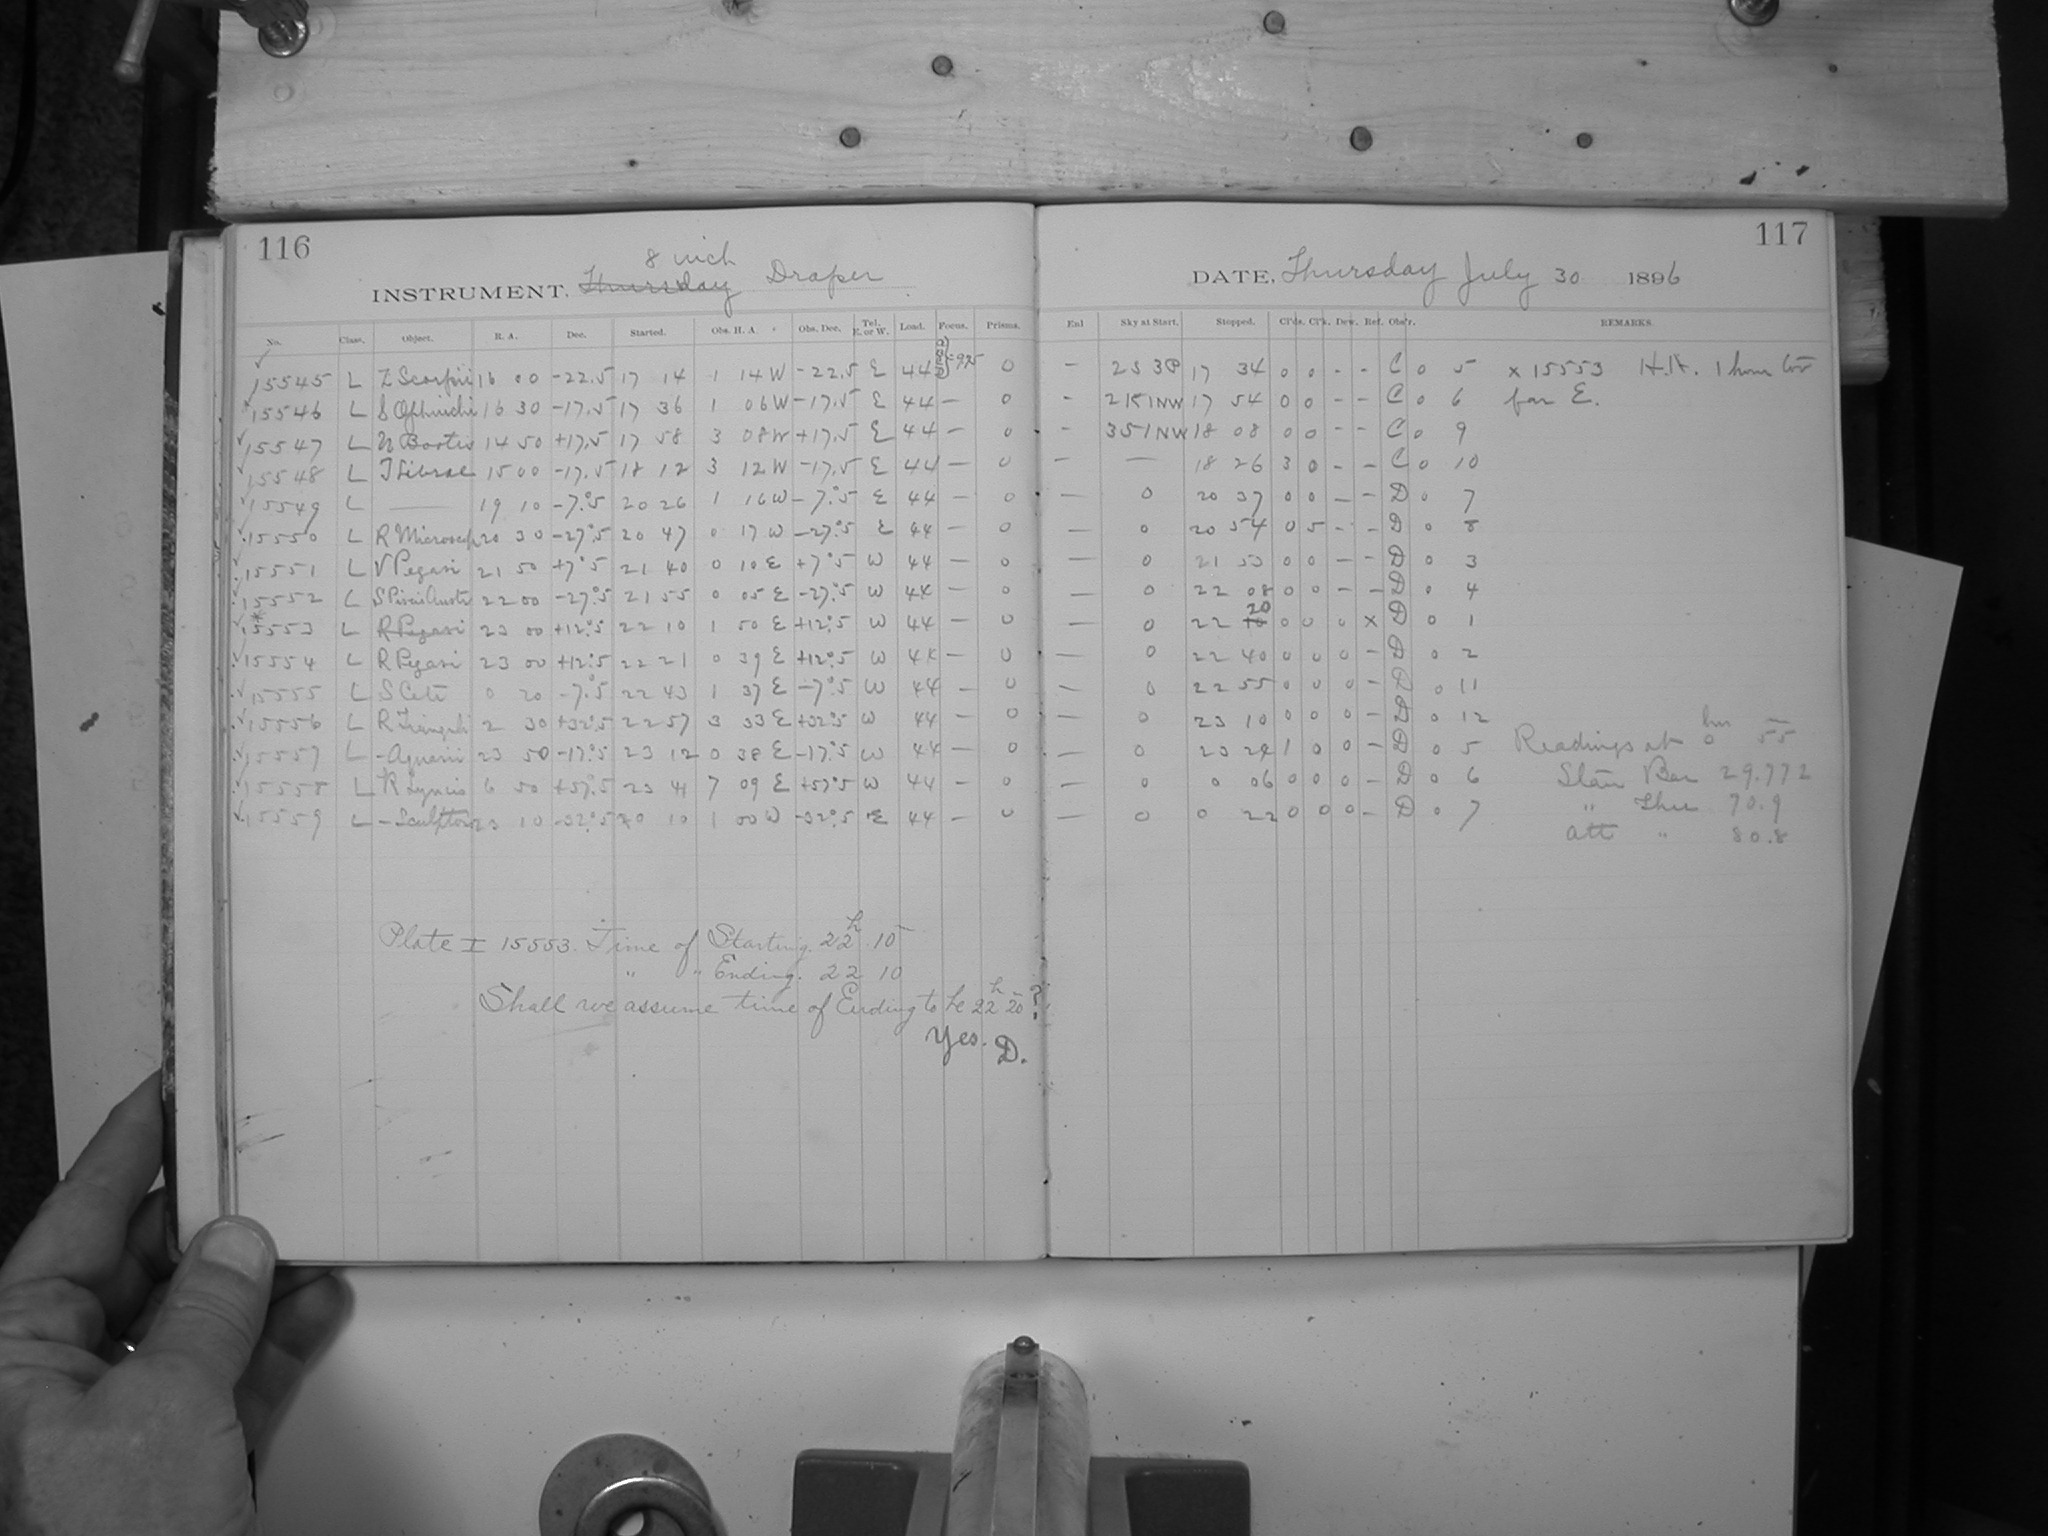 116
117
8 inch
INSTRUMENT, Thursday Draper
DATE, Thursday July 30 1896
No. Class. Object. R. A. Dec. Started. Obs. H. A. Obs. Dec. Tel. E. or W. Load. Focus. Prisms. Enl Sky at Start. Stopped. Cl'ds. Cl'k. Dew. Ref. Obs'r. REMARKS
15545 L Z Scorpii 16 00 -22.5 17 14 1 14 W -22.5 E 44 =925 0 - 2S 3P 17 34 0 0 - - C 0 5 x 15553 H.A. 1 hour too
15546 L S Ophiuchi 16 30 -17.5 17 36 1 06 W -17.5 E 44 - 0 - 2K1NW 17 54 0 0 - - C 0 6 far E.
15547 L U Bootis 14 50 +17.5 17 58 3 08 W +17.5 E 44 - 0 - 3S1NW 18 08 0 0 - - C 0 9
15548 L T Librae 15 00 -17.5 18 12 3 12 W -17.5 E 44 - 0 - - 18 26 3 0 - - C 0 10
15549 L — 19 10 -7°.5 20 26 1 16 W -7°.5 E 44 - 0 - 0 20 37 0 0 - - D 0 7
15550 L R Microscop 20 30 -27°.5 20 47 0 17 W -27°.5 E 44 - 0 - 0 20 54 0 5 - - D 0 8
15551 L V Pegasi 21 50 +7°.5 21 40 0 10 E +7°.5 W 44 - 0 - 0 21 53 0 0 - - D 0 3
15552 L S Piscis Austr 22 00 -27°.5 21 55 0 05 E -27°.5 W 44 - 0 - 0 22 08 0 0 - - D 0 4
15553 L R Pegasi 23 00 +12°.5 22 10 1 50 E +12°.5 W 44 - 0 - 0 22 10 20 0 0 0 x D 0 1
15554 L R Pegasi 23 00 +12°.5 22 21 0 39 E +12°.5 W 44 - 0 - 0 22 40 0 0 0 - D 0 2
15555 L S Ceti 0 20 -7°.5 22 43 1 37 E -7°.5 W 44 - 0 - 0 22 55 0 0 0 - D 0 11
15556 L R Trianguli 2 30 +32°.5 22 57 3 33 E +32°.5 W 44 - 0 - 0 23 10 0 0 0 - D 0 12
15557 L - Aquarii 23 50 -17°.5 23 12 0 38 E -17°.5 W 44 - 0 - 0 23 24 1 0 0 - D 0 5 Readings at 0 hm 55
15558 L R Lyncis 6 50 +57°.5 23 41 7 09 E +57°.5 W 44 - 0 - 0 0 06 0 0 0 - D 0 6 Stan Bar 29.772
15559 L - Sculptoris 23 10 -32°.5 0 10 1 00 W -32°.5 E 44 - 0 - 0 0 22 0 0 0 - D 0 7 " Ther 70.9
Att " 80.8
Plate I 15553. Time of Starting. 22h 10
" " Ending. 22 10
Shall we assume time of Ending to be 22h 20?
Yes. D.